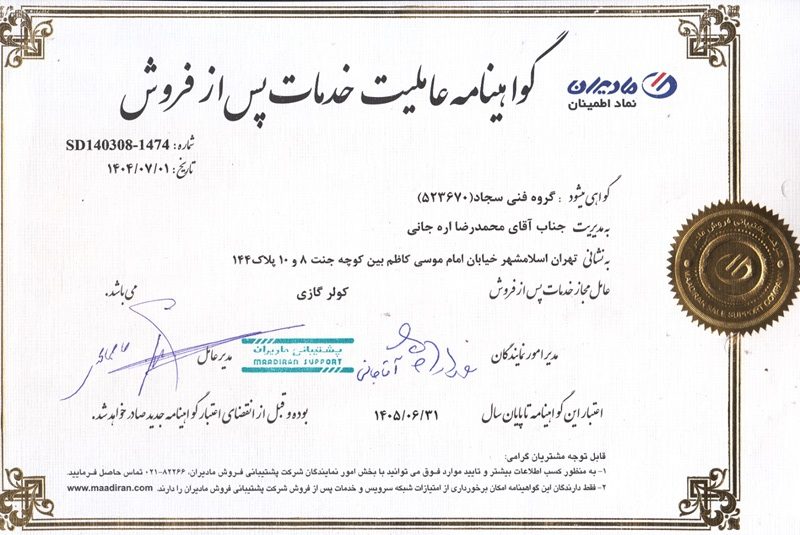 گواهینامه عاملیت خدمات پس از فروش
مادیران
نماد اطمینان
شماره: SD140308-1474
تاریخ: ۱۴۰۴/۰۷/۰۱
گواهی میشود : گروه فنی سجاد(۵۲۳۶۷۰)
به مدیریت جناب آقای محمدرضا اره جانی
به نشانی تهران اسلامشهر خیابان امام موسی کاظم بین کوچه جنت ۸ و ۱۰ پلاک۱۴۴
عامل مجاز خدمات پس از فروش کولر گازی می باشد.
مدیر امور نمایندگان
مدیر عامل
پشتیبانی مادیران
MAADIRAN SUPPORT
اعتبار این گواهینامه تا پایان سال ۱۴۰۵/۰۶/۳۱ بوده و قبل از انقضای اعتبار گواهینامه جدید صادر خواهد شد.
قابل توجه مشتریان گرامی:
۱- به منظور کسب اطلاعات بیشتر و تایید موارد فوق می توانید با بخش امور نمایندگان شرکت پشتیبانی فروش مادیران، ۸۲۲۶۶-۰۲۱ تماس حاصل فرمایید.
۲- فقط دارندگان این گواهینامه امکان برخورداری از امتیازات شبکه سرویس و خدمات پس از فروش شرکت پشتیبانی فروش مادیران را دارند. www.maadiran.com
شرکت پشتیبانی فروش مادیران
MAADIRAN SALE SUPPORT COMPANY